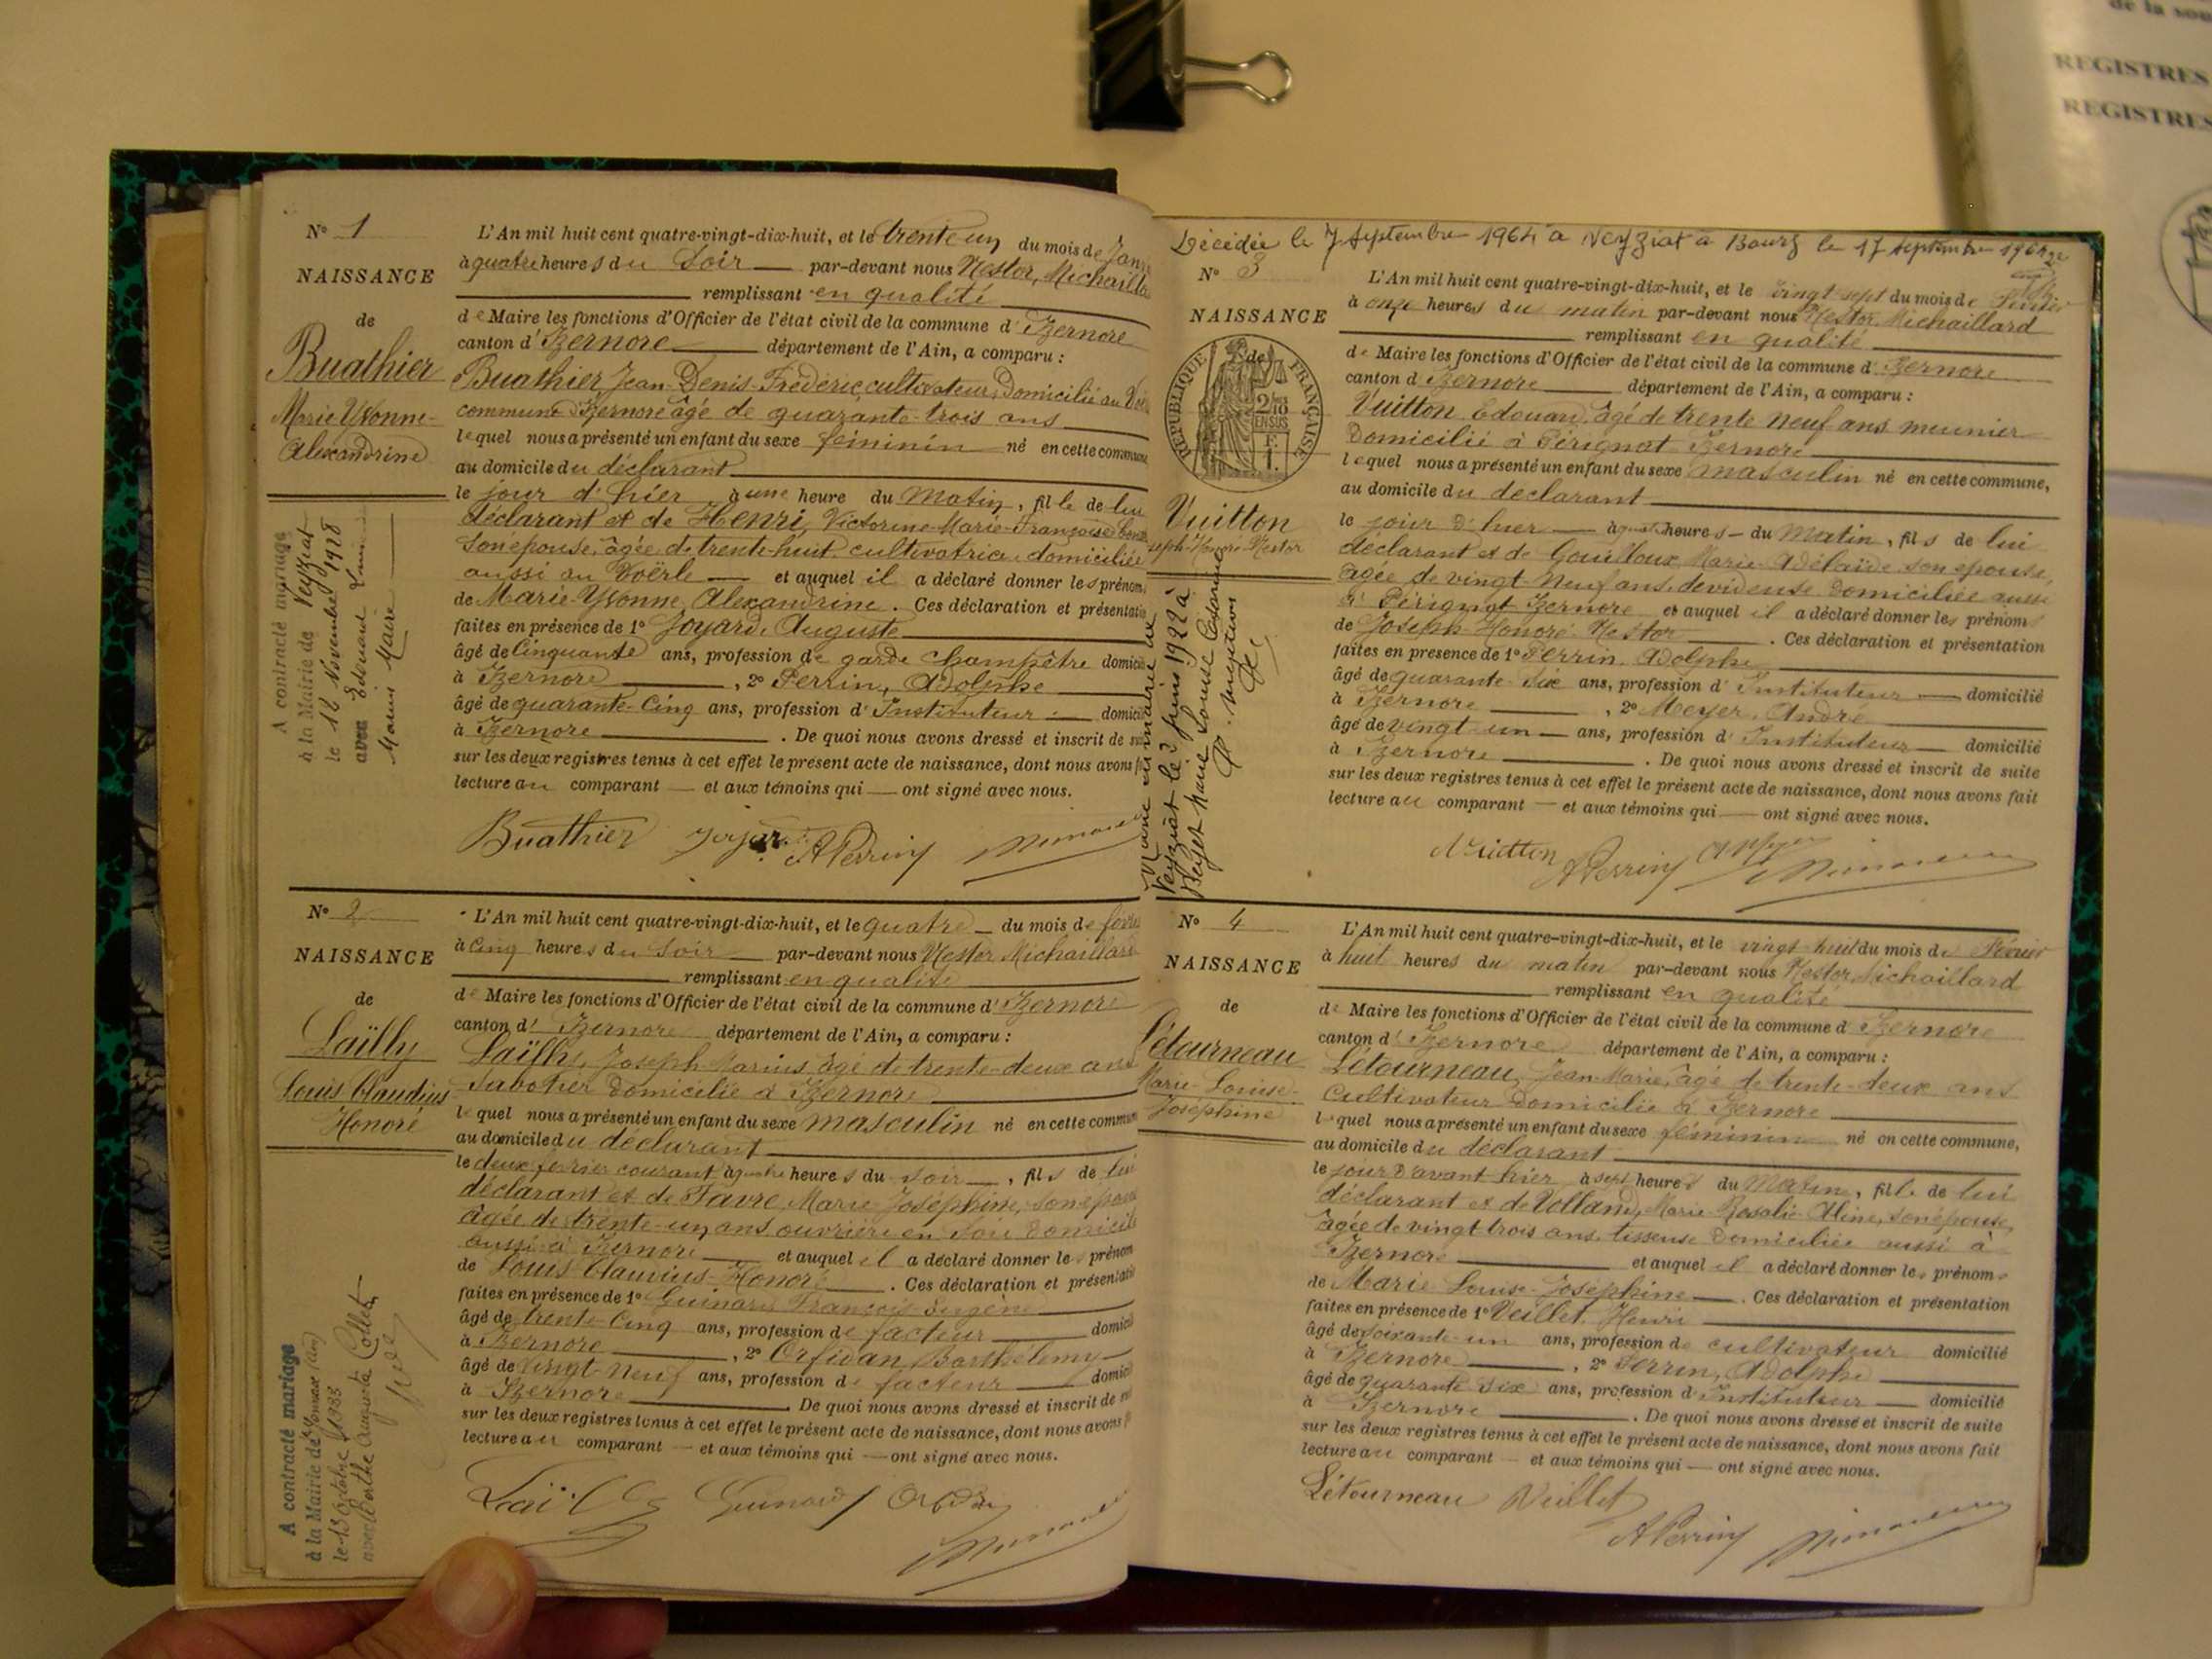 N° 1
NAISSANCE
de
Buathier
Marie Yvonne-
Alexandrine
A contracté mariage
à la Mairie de Veyziat
le 18 Novembre 1928
avec Edouard
L'An mil huit cent quatre-vingt-dix-huit, et le trente-un du mois de Janv
à quatre heures du Soir par-devant nous Nestor, Michailla
remplissant en qualité
de Maire les fonctions d'Officier de l'état civil de la commune d'Izernore
canton d'Izernore département de l'Ain, a comparu :
Buathier Jean-Denis-Frédéric cultivateur, Domicilié au
commune d'Izernore âgé de quarante-trois ans
lequel nous a présenté un enfant du sexe féminin né en cette commune
au domicile du déclarant
le jour d'hier, à une heure du Matin, fille de lui
déclarant et de Henri, Victorine-Marie-Françoise
son épouse, âgée de trente-huit, cultivatrice, domiciliée
aussi au Voërle et auquel il a déclaré donner les prénom
de Marie-Yvonne, Alexandrine. Ces déclaration et présentatio
faites en présence de 1° Joyard, Auguste
âgé de Cinquante ans, profession de garde champêtre domici
à Izernore, 2° Perrin, Adolphe
âgé de quarante-Cinq ans, profession d'Instituteur domici
à Izernore. De quoi nous avons dressé et inscrit de su
sur les deux registres tenus à cet effet le présent acte de naissance, dont nous avons f
lecture au comparant — et aux témoins qui — ont signé avec nous.
Buathier A Perrin
N° 2
NAISSANCE
de
Laïlly
Louis Claudius
Honoré
A contracté mariage
à la Mairie de
le 15 Octobre 1933
avec Berthe Augusta Collet
L'An mil huit cent quatre-vingt-dix-huit, et le quatre du mois de fév
à Cinq heures du Soir par-devant nous Nestor Michaillard
remplissant en qualité
de Maire les fonctions d'Officier de l'état civil de la commune d'Izernore
canton d'Izernore département de l'Ain, a comparu :
Laïlly, Joseph Marius âgé de trente-deux ans
Sabotier domicilié à Izernore
lequel nous a présenté un enfant du sexe masculin né en cette commun
au domicile du déclarant
le deux février courant à quatre heures du soir, fils de lui
déclarant et de Favre, Marie Joséphine, son épous
âgée de trente-un ans ouvrière en Soie Domicili
aussi à Izernore et auquel il a déclaré donner les prénom
de Louis Claudius-Honoré. Ces déclaration et présentati
faites en présence de 1° Guinard François Eugène
âgé de trente-Cinq ans, profession de facteur domici
à Izernore, 2° Orfidan Barthélemy
âgé de Vingt-Neuf ans, profession de facteur domici
à Izernore De quoi nous avons dressé et inscrit de su
sur les deux registres tenus à cet effet le présent acte de naissance, dont nous avons f
lecture au comparant — et aux témoins qui — ont signé avec nous.
Laïlly Guinard
Décédée le 7 Septembre 1964 à Veyziat à Bourg le 17 Septembre 1964
N° 3
NAISSANCE
de
RÉPUBLIQUE FRANÇAISE
2/10
EN SUS
F.
1.
Vuitton
Joseph-Honoré Nestor
Marié en mairie de
Veyziat le 3 juin 1922 à
L'An mil huit cent quatre-vingt-dix-huit, et le Vingt-sept du mois de Février
à onze heures du matin par-devant nous Nestor, Michaillard
remplissant en qualité
de Maire les fonctions d'Officier de l'état civil de la commune d'Izernore
canton d'Izernore département de l'Ain, a comparu :
Vuitton Edouard, âgé de trente neuf ans meunier
Domicilié à Pérignat Izernore
lequel nous a présenté un enfant du sexe masculin né en cette commune,
au domicile du déclarant
le jour d'hier à quatre heures du Matin, fils de lui
déclarant et de Gouilloux Marie-Adélaïde son épouse,
âgée de vingt-Neuf ans, devideuse Domiciliée aussi
à Pérignat-Izernore et auquel il a déclaré donner les prénoms
de Joseph-Honoré-Nestor. Ces déclaration et présentation
faites en présence de 1° Perrin, Adolphe
âgé de quarante-Six ans, profession d'Instituteur domicilié
à Izernore, 2° Meyer, André
âgé de vingt-un ans, profession d'Instituteur domicilié
à Izernore. De quoi nous avons dressé et inscrit de suite
sur les deux registres tenus à cet effet le présent acte de naissance, dont nous avons fait
lecture au comparant — et aux témoins qui — ont signé avec nous.
Vuitton A Perrin
N° 4
NAISSANCE
de
Létourneau
Marie-Louise-
Joséphine
L'An mil huit cent quatre-vingt-dix-huit, et le vingt-huit du mois de Février
à huit heures du matin par-devant nous Nestor, Michaillard
remplissant en qualité
de Maire les fonctions d'Officier de l'état civil de la commune d'Izernore
canton d'Izernore département de l'Ain, a comparu :
Létourneau, Jean-Marie, âgé de trente-deux ans
Cultivateur Domicilié à Izernore
lequel nous a présenté un enfant du sexe féminin né en cette commune,
au domicile du déclarant
le jour d'avant hier, à sept heures du Matin, fille de lui
déclarant et de Volland, Marie-Rosalie-Aline, son épouse,
âgée de vingt trois ans, tisseuse Domiciliée aussi à
Izernore et auquel il a déclaré donner les prénoms
de Marie Louise-Joséphine. Ces déclaration et présentation
faites en présence de 1° Veillet, Henri
âgé de soixante-un ans, profession de cultivateur domicilié
à Izernore, 2° Perrin, Adolphe
âgé de quarante Six ans, profession d'Instituteur domicilié
à Izernore. De quoi nous avons dressé et inscrit de suite
sur les deux registres tenus à cet effet le présent acte de naissance, dont nous avons fait
lecture au comparant — et aux témoins qui — ont signé avec nous.
Létourneau Veillet
A Perrin
de la sou
REGISTRES
REGISTRES